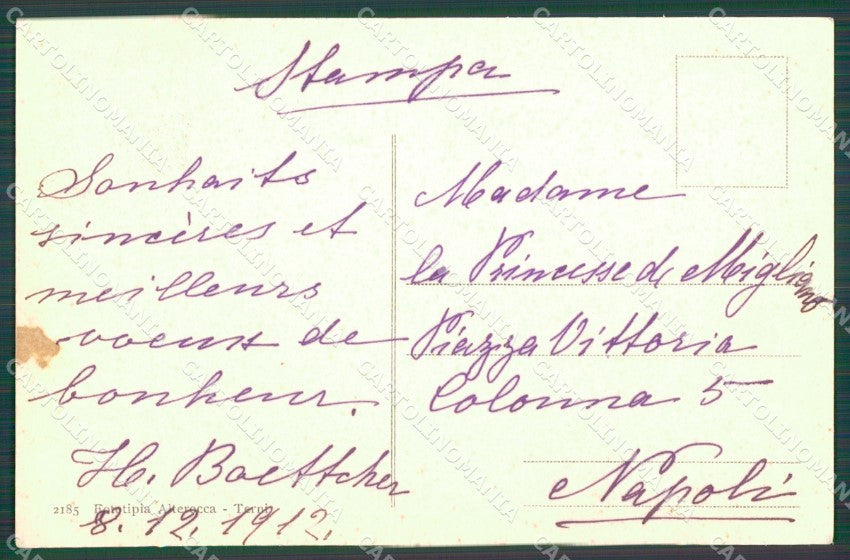 Stampa
Souhaits
sincères et
meilleurs
voeux de
bonheur.
H. Boettcher
8. 12. 1912.
Madame
la Princesse de Migliano
Piazza Vittoria
Colonna 5
Napoli
2185 Fototipia Alterocca - Terni
CARTOLINOMANIA